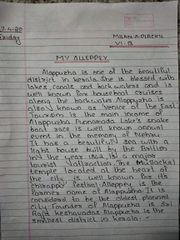 Friday
VI. B
MY ALLEPPEY
Alappuzha is one of the beautiful
district in kerala. She is blessed with
lakes, canals and backwaters and is
well known for houseboat cruises
along the backwaters. Alappuzha is
also known as Venice of the East
Tourism is the main income of
Alappuzha. Punnamada Lake's snake
boat race is well known annual
event in the memory of Nehru
It has a beautiful sea with a
light house built by the British
in the year 1862. Its a major
tourist attraction. The Mullackal
temple located at the heart of
the city, is well known for its
chirappu festival. Alleppey is the
former name of Alappuzha. It is
considered to be the oldest planned
city. Founder of Alappuzha is Sri
Raja Keshavadas. Alappuzha is the
smallest district in kerala.